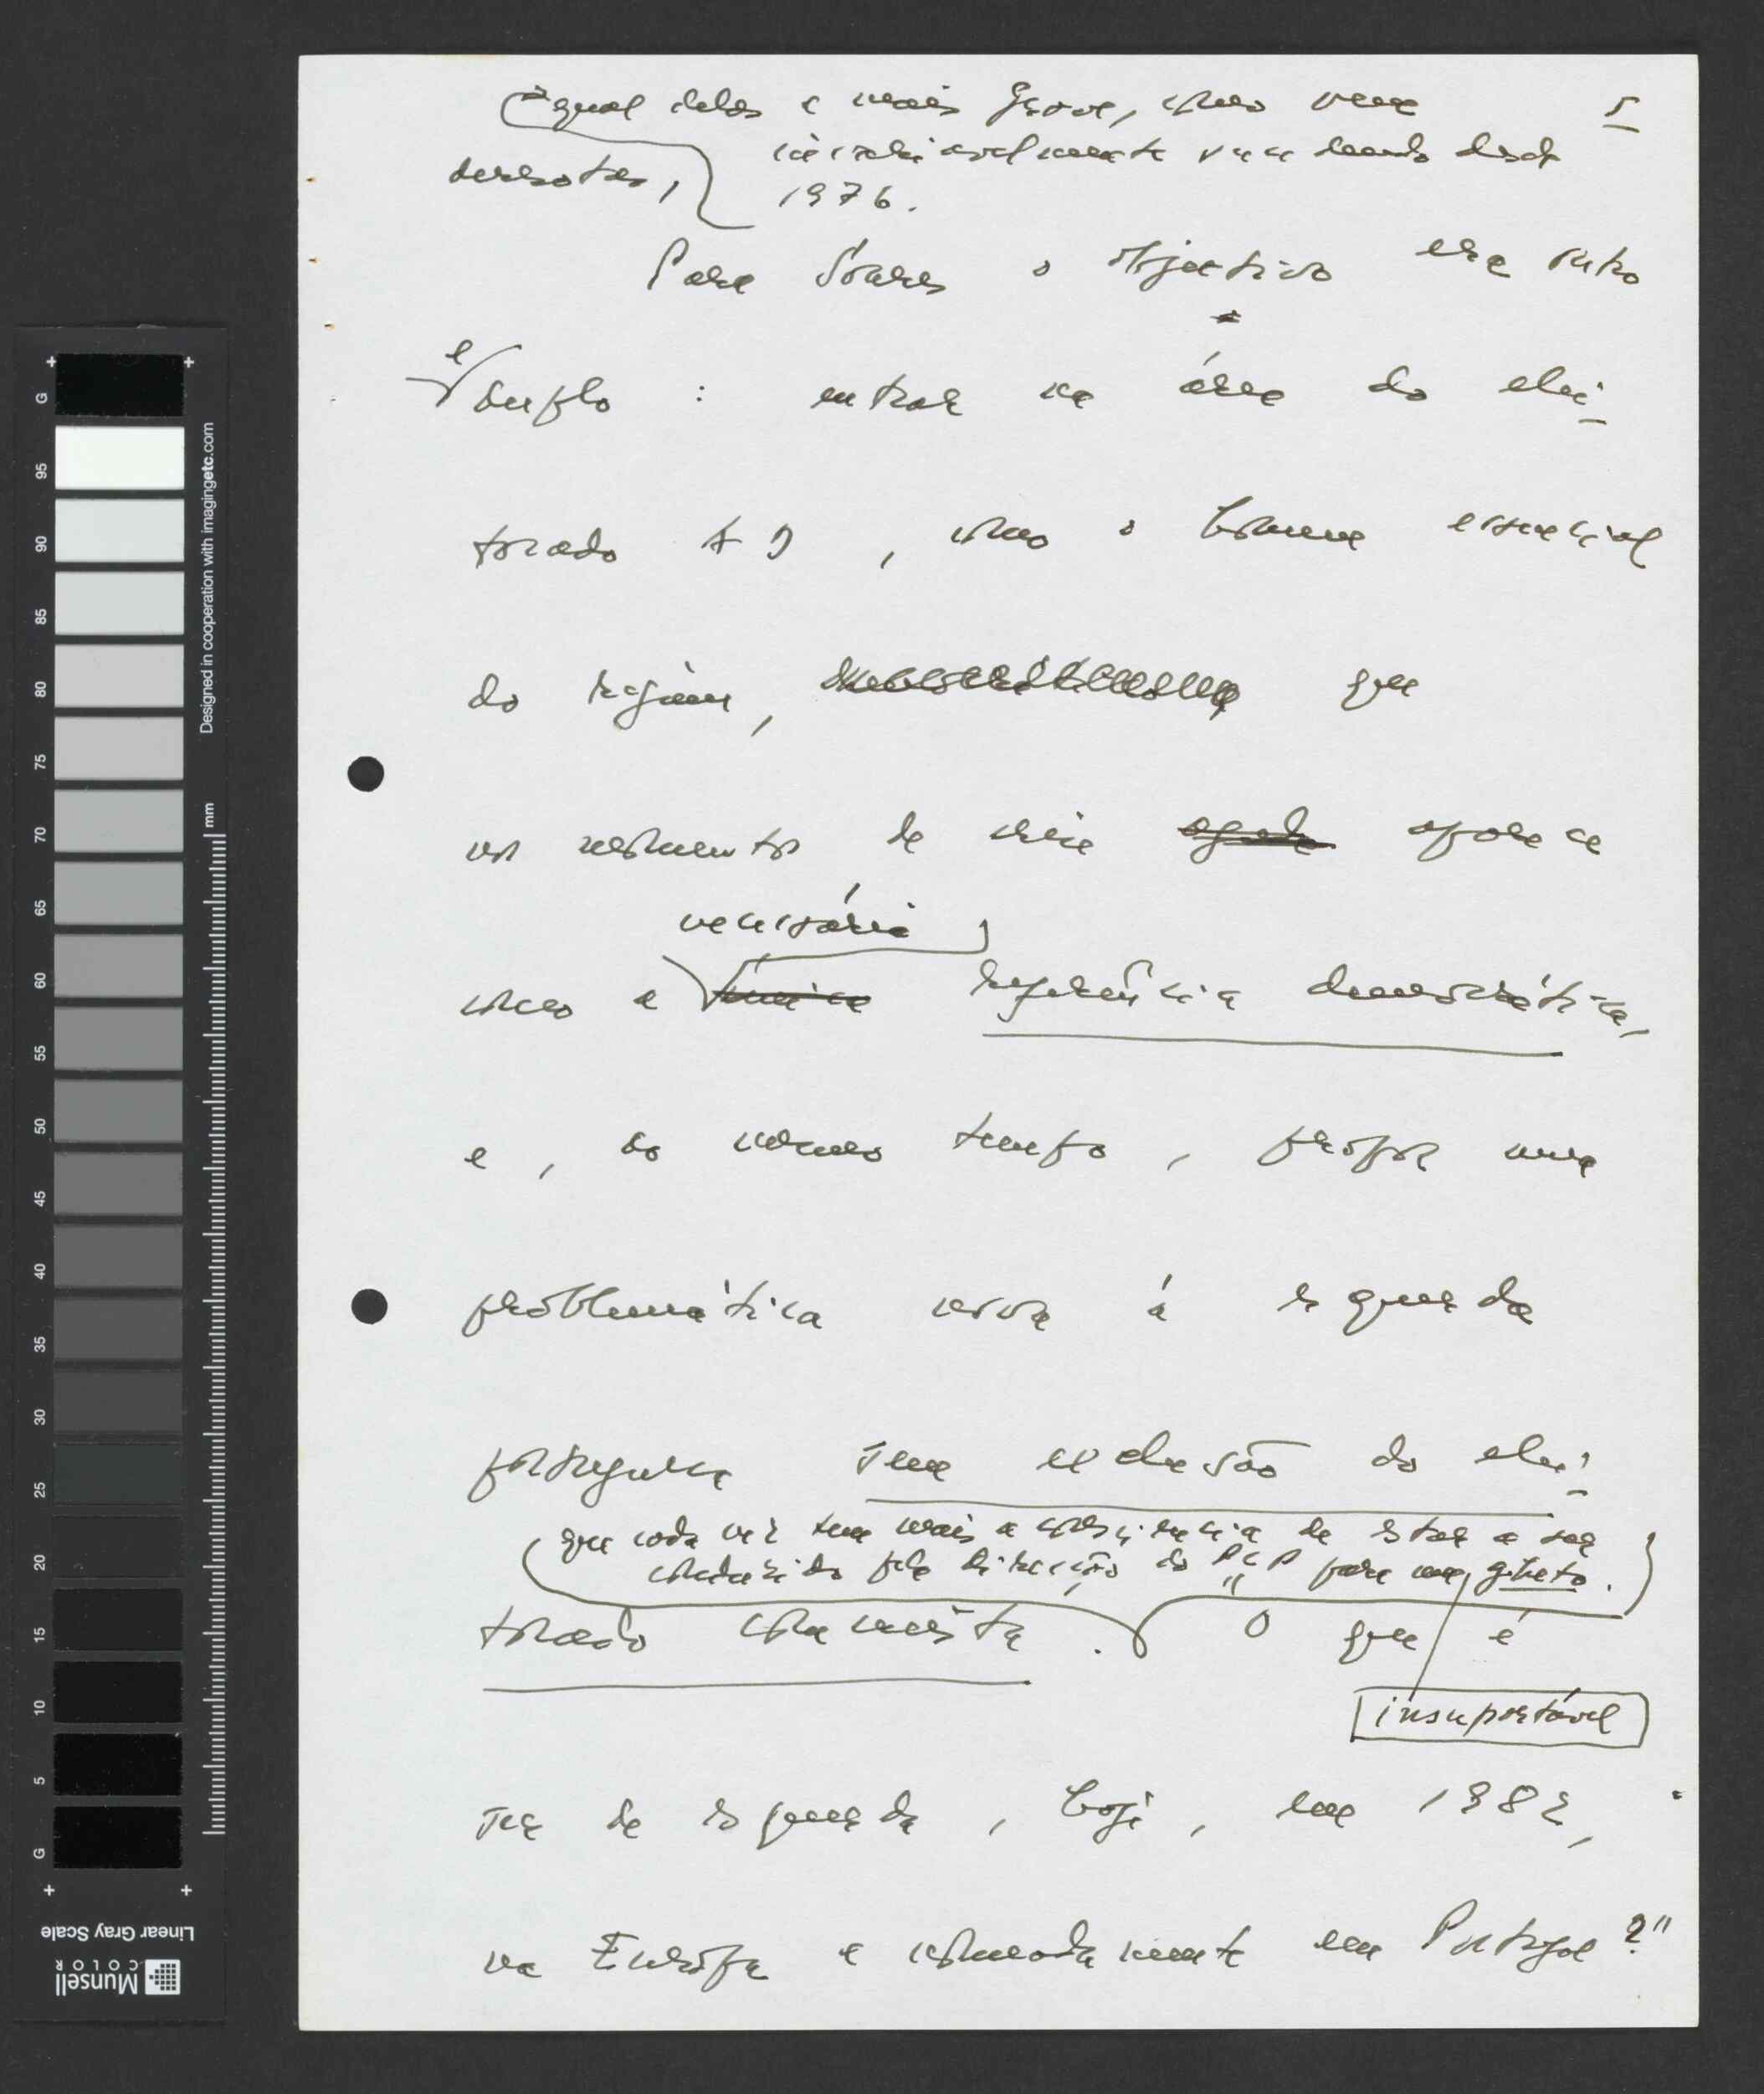 5
qual delas a mais grave, como vem
invariavelmente vem sendo desde
derrotas,
1976.
Para Soares o objectivo era outro
e duplo : entrar na área do elei-
torado AD, como o homem essencial
do regime, que
nos momentos de crise aparece
necessária
como a única referência democrática,
e, ao mesmo tempo, propor uma
problemática nova à esquerda
portuguesa sem exclusão do elei-
que cada vez tem mais a consciência de estar a ser
conduzido pela direcção do PCP para um gheto.
torado comunista. O que é
insuportável
ser de esquerda, hoje, em 1982,
na Europa e nomeadamente em Portugal?"
Designed in cooperation with imagingetc.com
mm
G
95
90
85
80
75
70
65
60
55
50
45
40
35
30
25
20
15
10
5
G
Linear Gray Scale
Munsell
COLOR